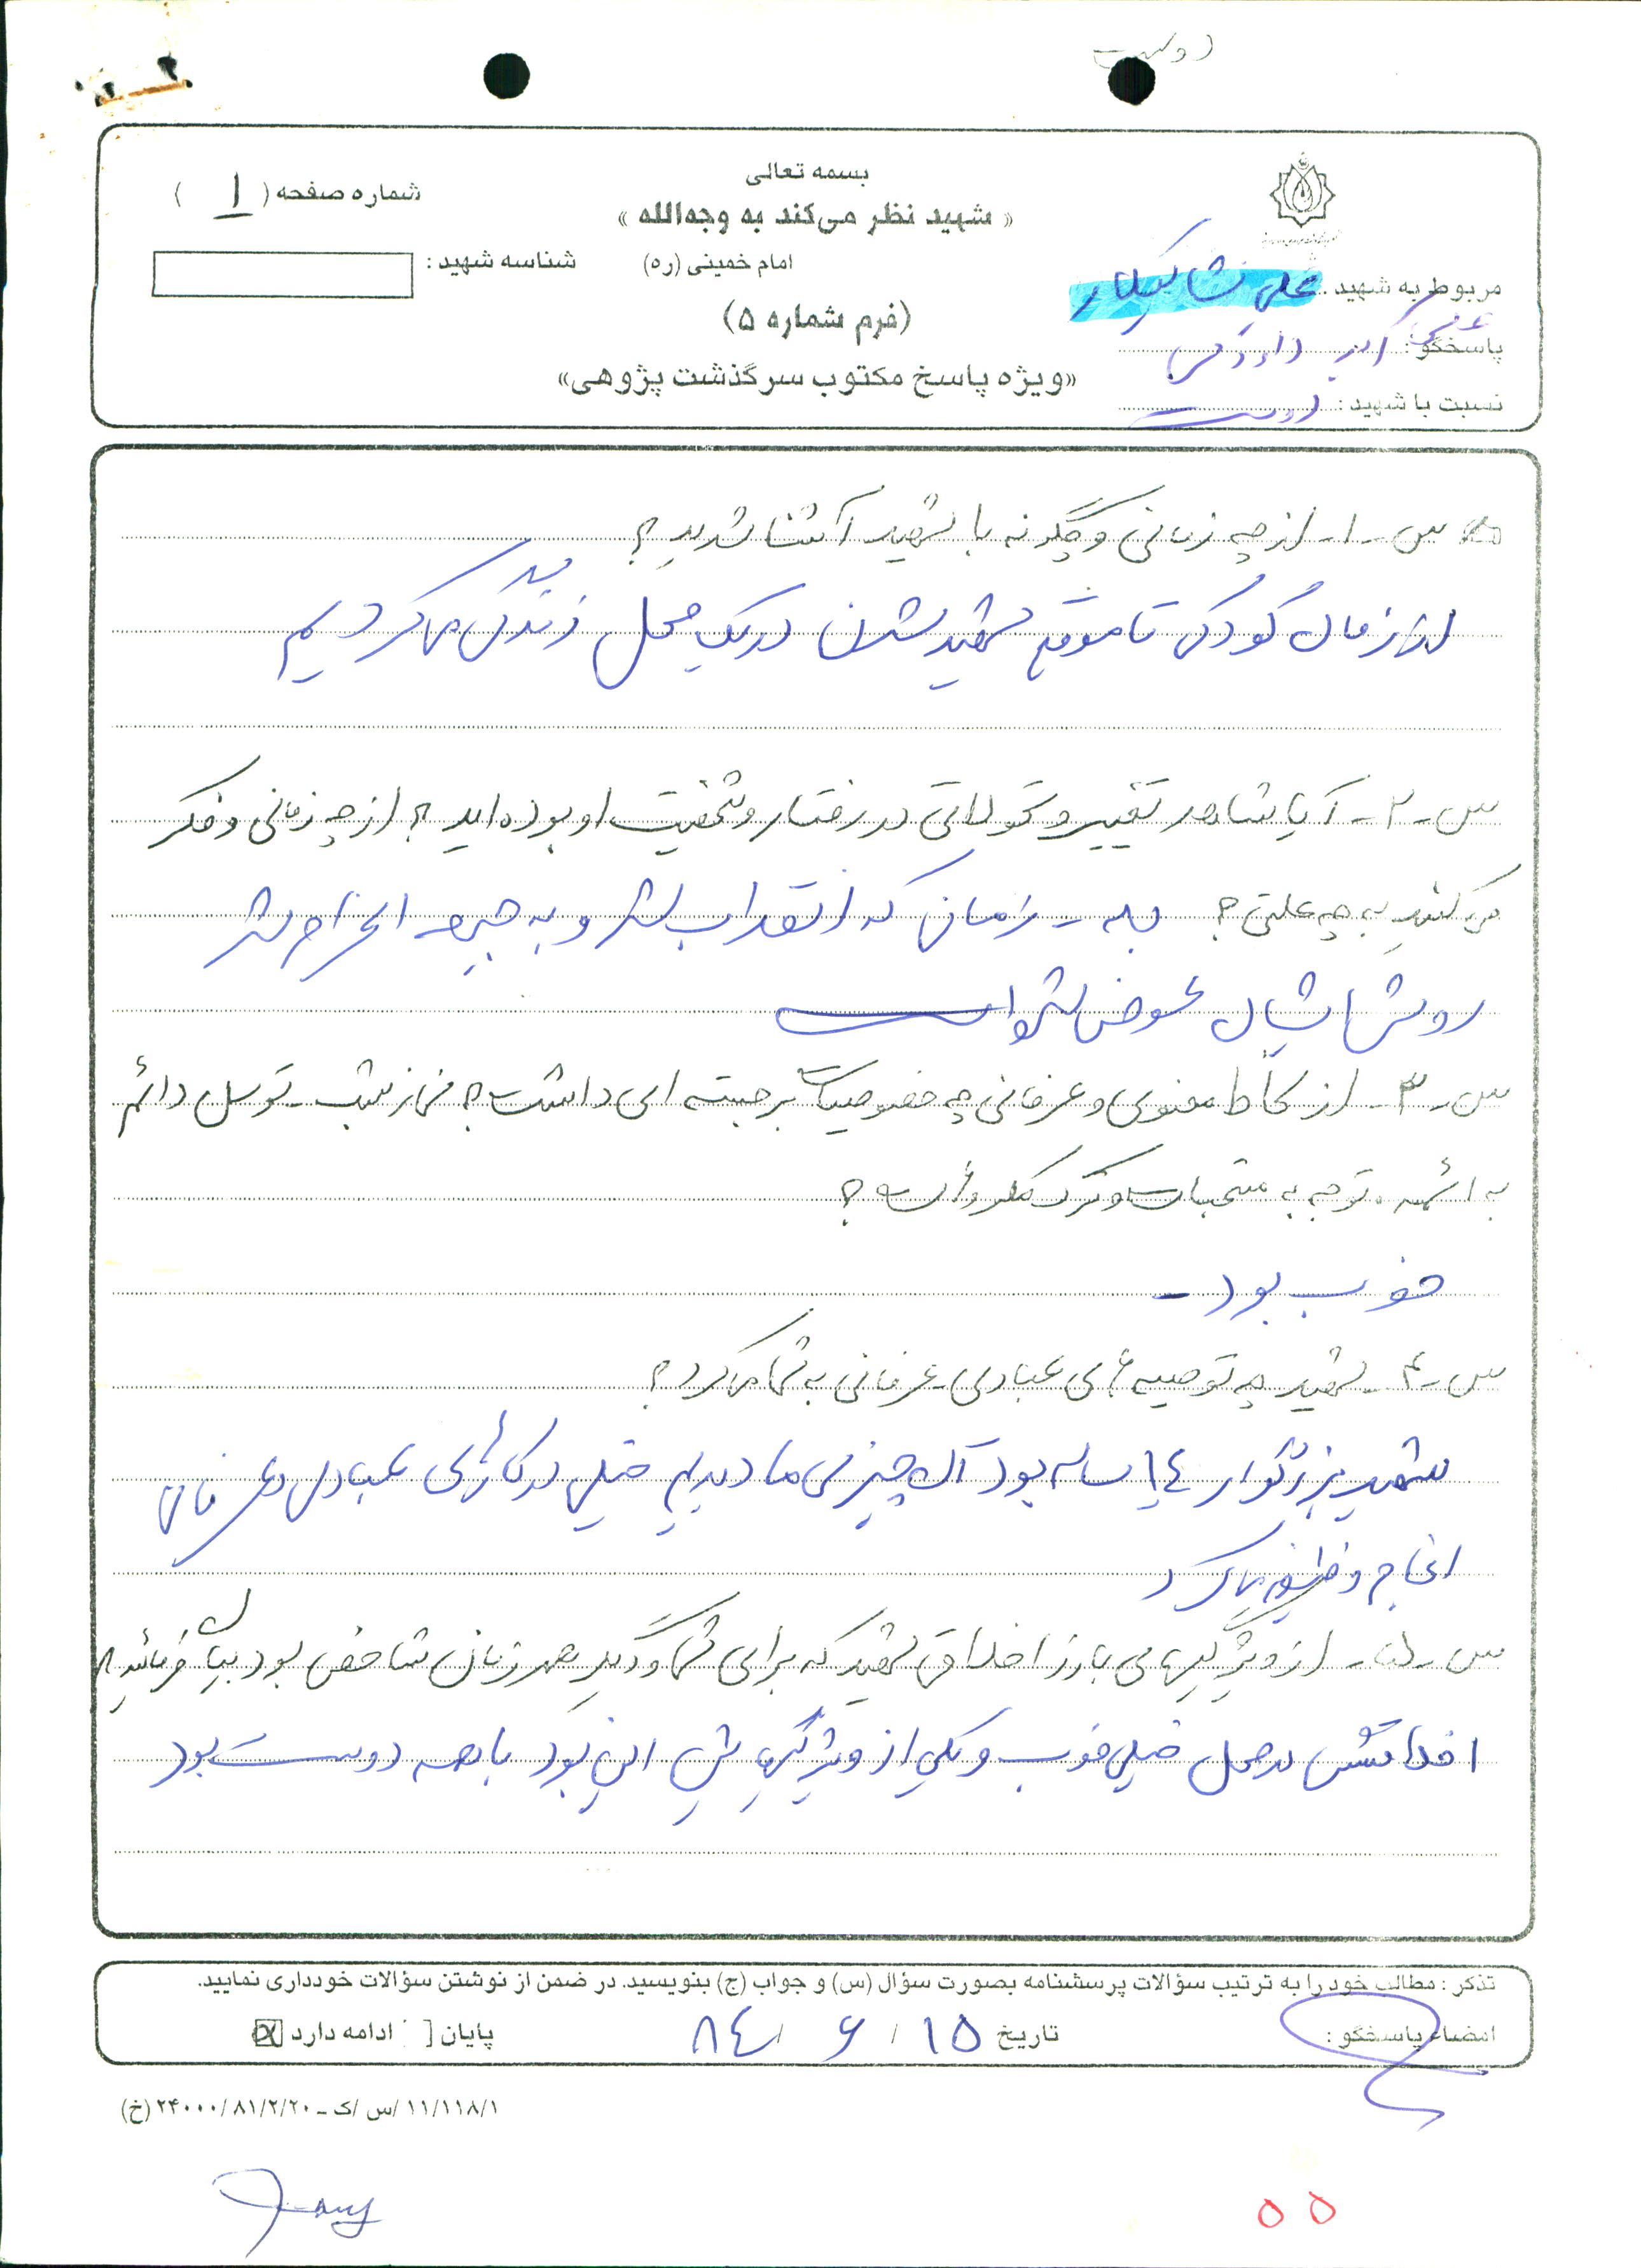 دوست
بسمه تعالی
« شهید نظر می‌کند به وجه‌الله »
امام خمینی (ره)
(فرم شماره ۵)
«ویژه پاسخ مکتوب سرگذشت پژوهی»
شماره صفحه ( ۱ )
شناسه شهید :
مربوط به شهید : علی
پاسخگو :
نسبت با شهید : دوست
س ـ ۱ ـ از چه زمانی و چگونه با شهید آشنا شدید ؟
از زمان کودکی تا موقع شهید شدن در یک محل زندگی می کردیم
س ـ ۲ ـ آیا شاهد تغییر و تحولاتی در رفتار و شخصیت او بوده اید ؟ از چه زمانی و فکر
می کنید به چه علتی ؟ بله ـ زمانی که انقلاب شد و به جبهه اعزام شد
روش ایشان عوض شده است
س ـ ۳ ـ از لحاظ معنوی و عرفانی چه خصوصیات برجسته ای داشت ؟ نماز شب ـ توسل دائم
به ائمه ، توجه به مستحبات و ترک مکروهات ؟
خوب بود ـ
س ـ ۴ ـ شهید چه توصیه های عبادی ـ عرفانی به شما می کرد ؟
شهید بزرگوار ۱۴ ساله بود آن چیزی ما دیدیم خیلی در کارهای عبادی و عرفانی
انجام وظیفه می کرد
س ـ ۵ ـ از ویژگیهای بارز اخلاق شهید که برای شما و دیگر همرزمان شاخص بود بیان فرمائید ؟
اخلاقش در محل خیلی خوب و یکی از ویژگیهایش این بود با همه دوست بود
تذکر : مطالب خود را به ترتیب سؤالات پرسشنامه بصورت سؤال (س) و جواب (ج) بنویسید. در ضمن از نوشتن سؤالات خودداری نمایید.
امضاء پاسخگو :
تاریخ ۱۵ / ۶ / ۸۴
پایان [ ] ادامه دارد [x]
۱۱/۱۱۸/۱ /س /ک ـ ۲۴۰۰۰/۸۱/۲/۲۰ (خ)
۵۵